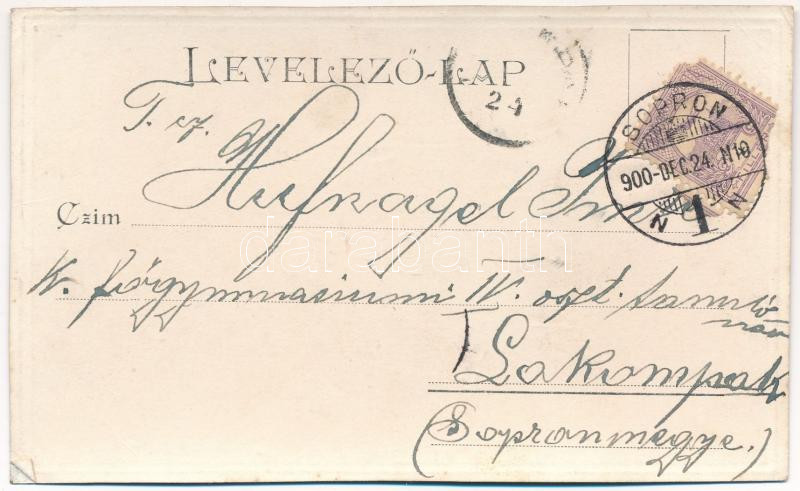 LEVELEZŐ-LAP
24
SOPRON
900-DEC.24. N10
N 1 N
T. cz. Hufnagel
Czim
K. főgymnasiumi IV. oszt. tanuló
Lakompak
(Sopronmegye.)
darabanth